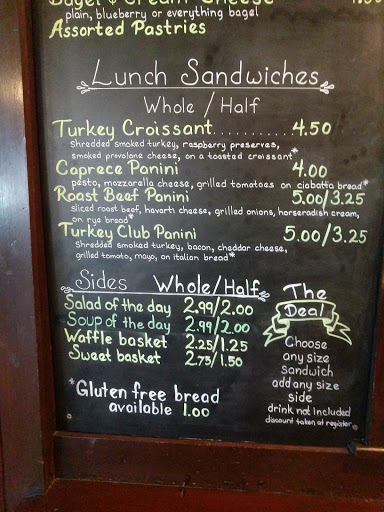 Bagel & Cream Cheese
plain, blueberry or everything bagel
Assorted Pastries
Lunch Sandwiches
Whole / Half
Turkey Croissant............4.50
shredded smoked turkey, raspberry preserves,
smoked provolone cheese, on a toasted croissant*
Caprece Panini 4.00
pesto, mozzarella cheese, grilled tomatoes on ciabatta bread*
Roast Beef Panini 5.00/3.25
sliced roast beef, havarti cheese, grilled onions, horseradish cream,
on rye bread*
Turkey Club Panini 5.00/3.25
shredded smoked turkey, bacon, cheddar cheese,
grilled tomato, mayo, on italian bread*
Sides Whole/Half
Salad of the day 2.99/2.00
Soup of the day 2.99/2.00
Waffle basket 2.25/1.25
Sweet basket 2.75/1.50
*Gluten free bread
available 1.00
The
Deal
Choose
any size
sandwich
add any size
side
drink not included
discount taken at register